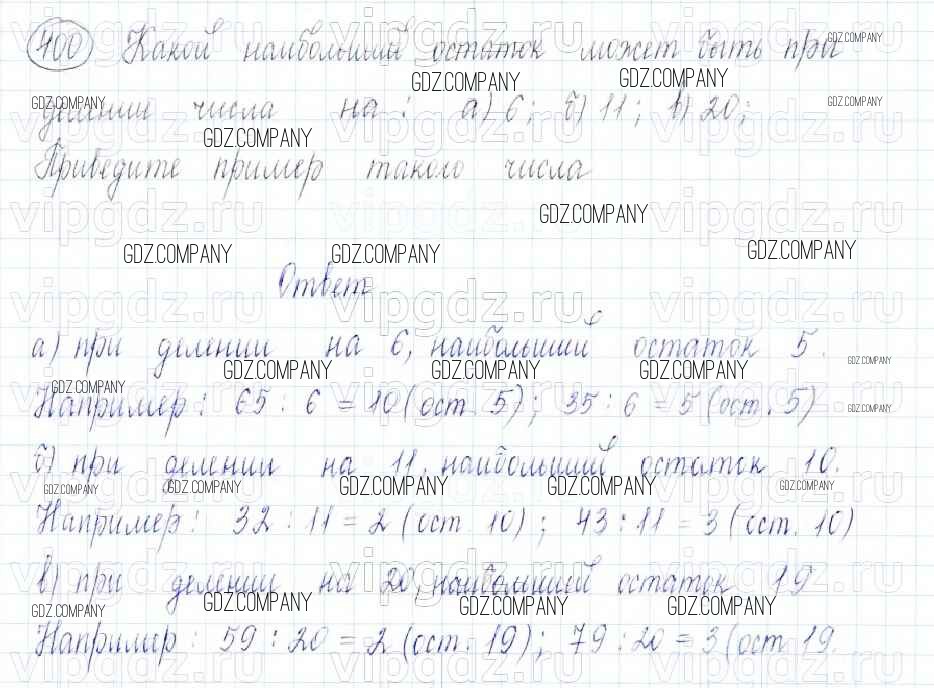 400 Какой наибольший остаток может быть при
делении числа на: а) 6; б) 11; в) 20;
Приведите пример такого числа
Ответ
а) при делении на 6, наибольший остаток 5.
Например: 65 : 6 = 10 (ост. 5); 35 : 6 = 5 (ост. 5)
б) при делении на 11, наибольший остаток 10.
Например: 32 : 11 = 2 (ост. 10); 43 : 11 = 3 (ост. 10)
в) при делении на 20, наибольший остаток 19
Например: 59 : 20 = 2 (ост. 19); 79 : 20 = 3 (ост 19.
GDZ.COMPANY
vipgdz.ru